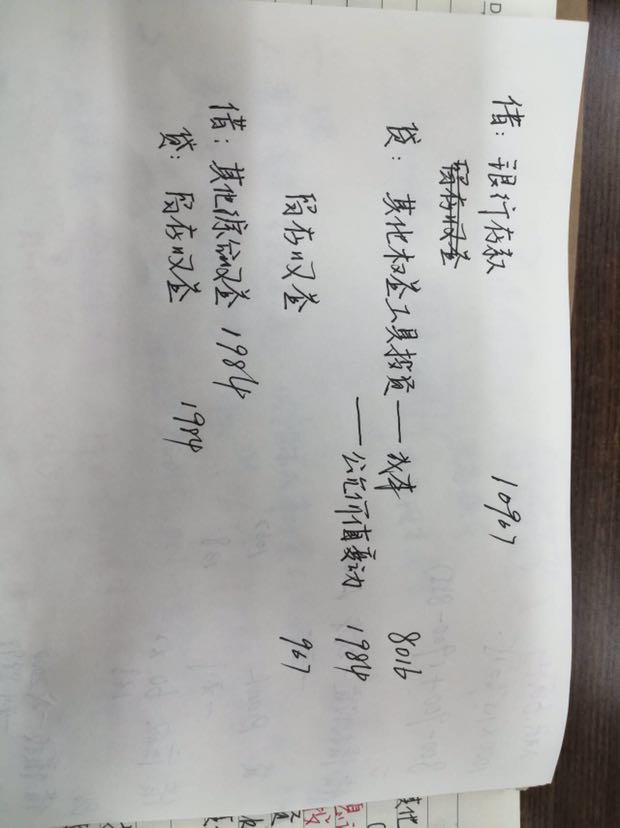 借：银行存款 10967
留存收益
贷：其他权益工具投资——成本 8016
——公允价值变动 1984
留存收益 967
借：其他综合收益 1984
贷：留存收益 1984
其他